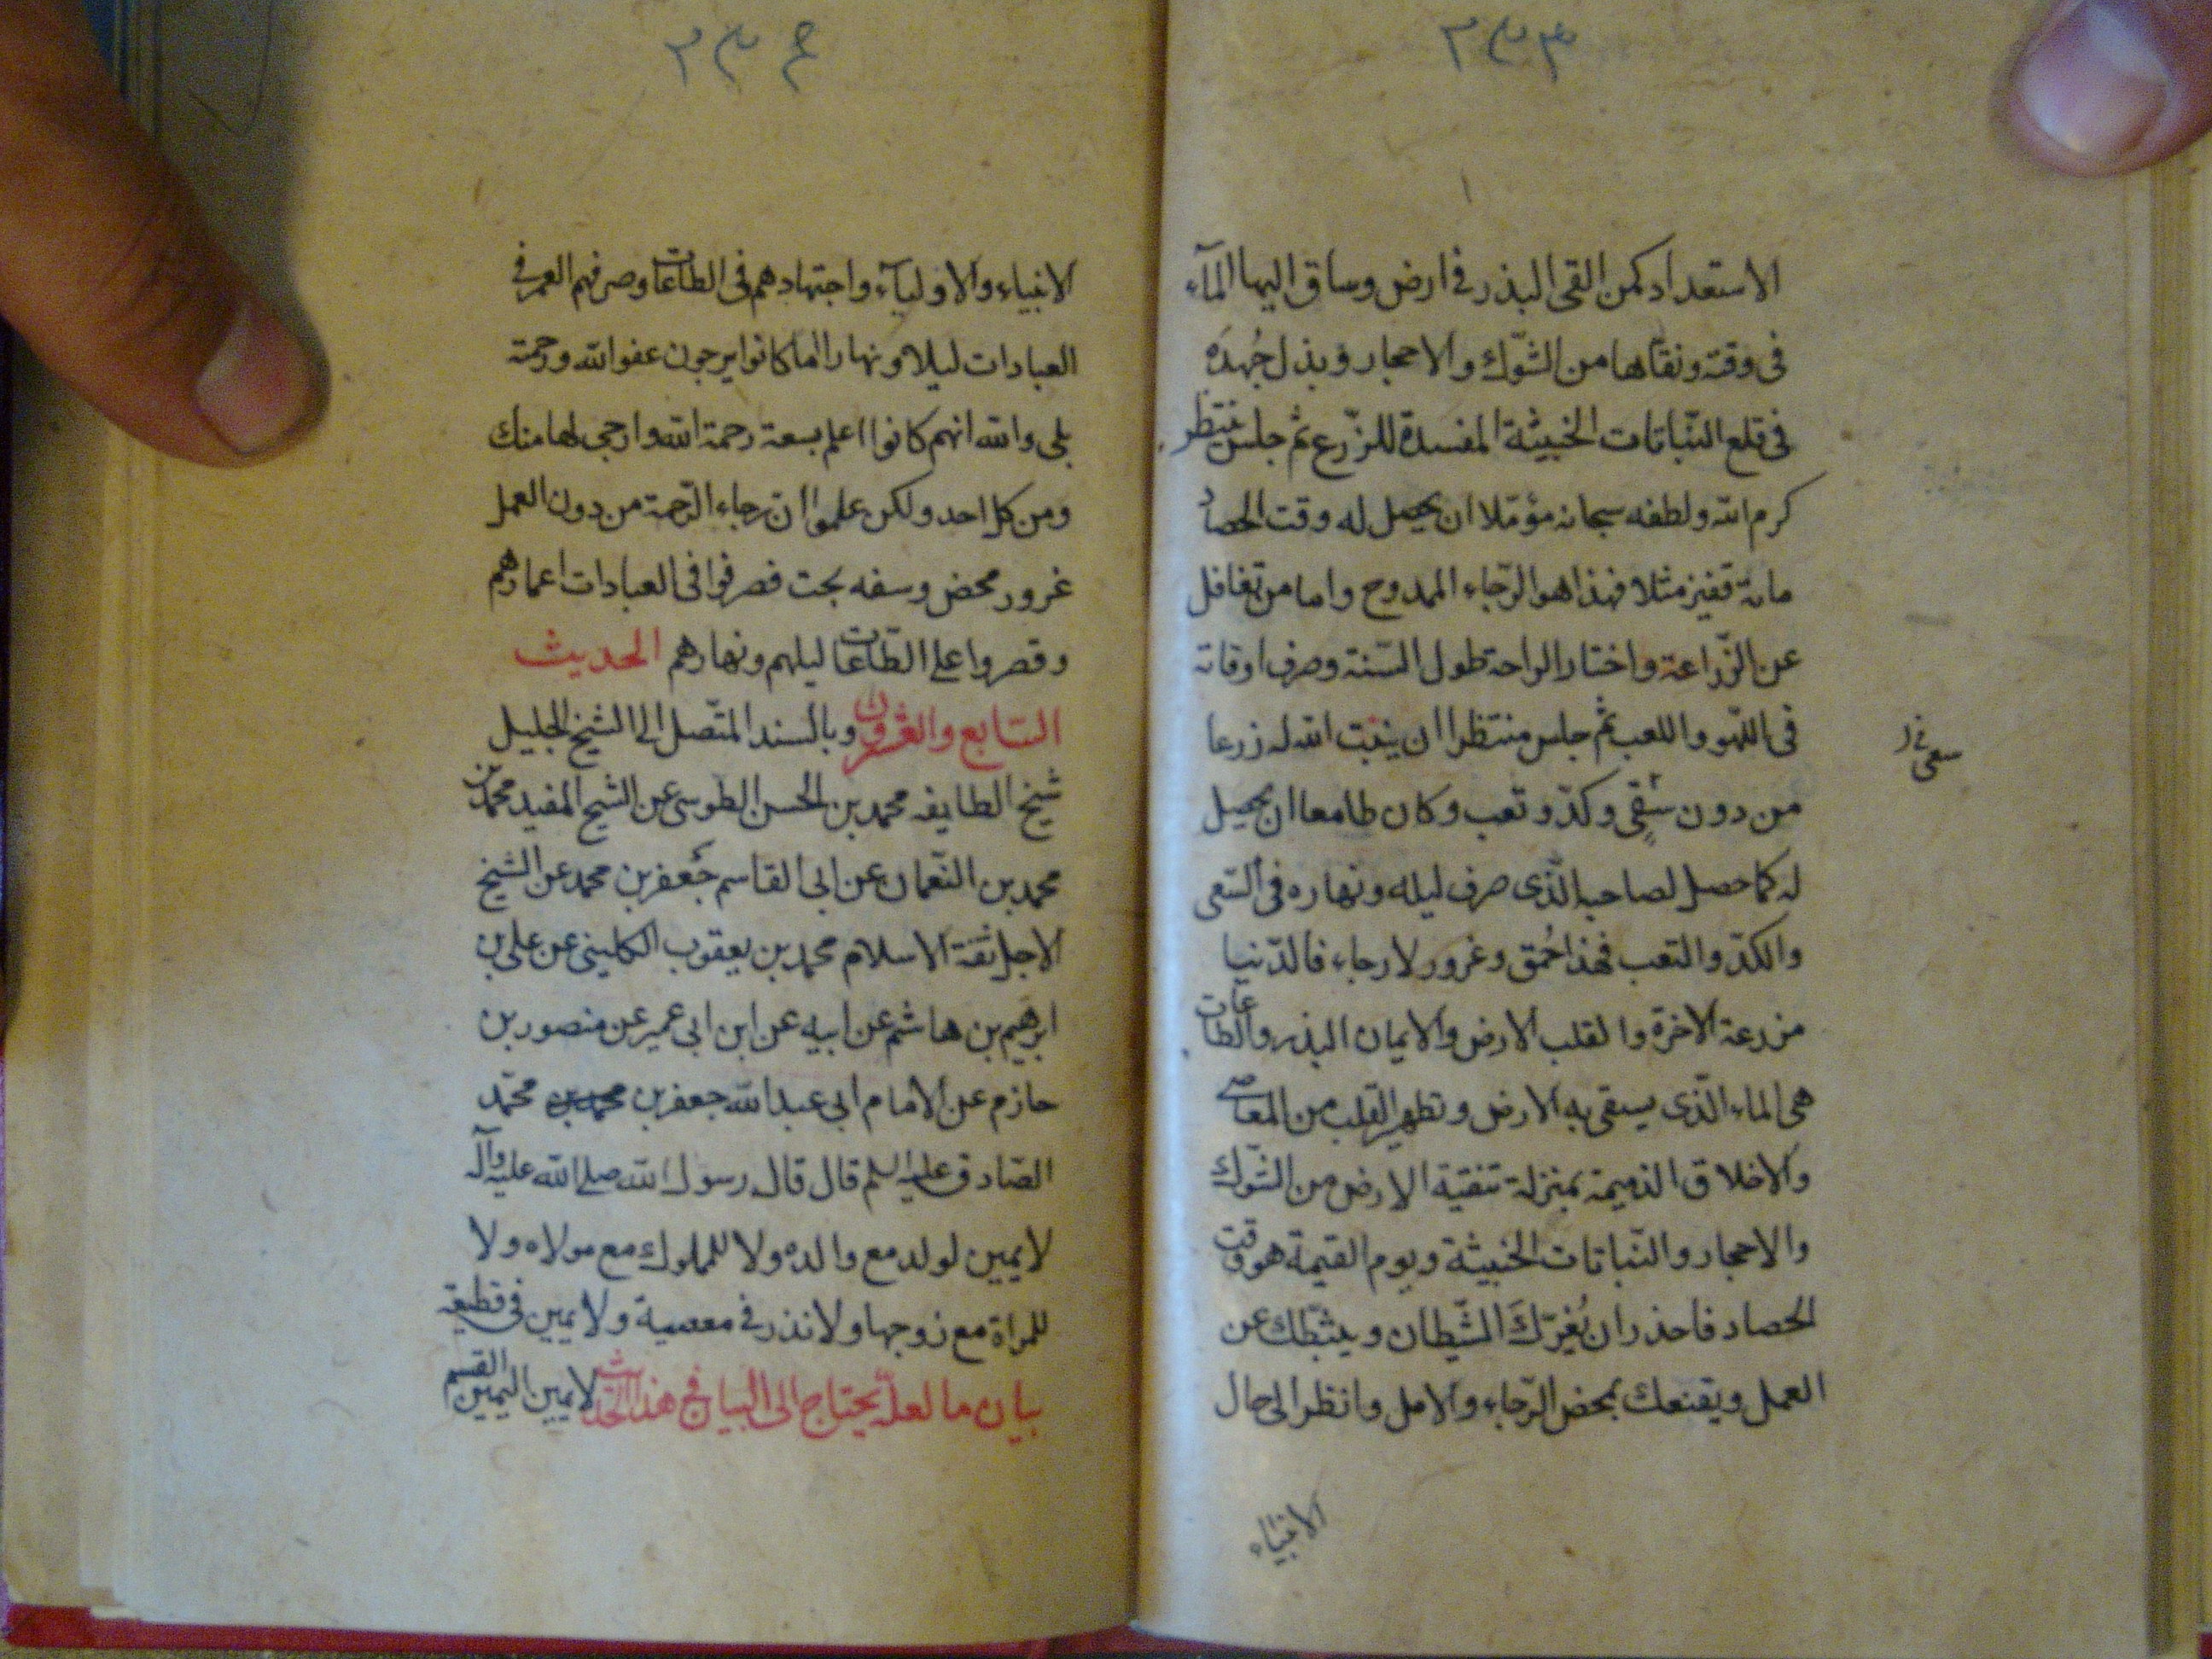 ٢٣٣
الاستعداد كمن القى البذر فى ارض وساق اليها المآء
فى وقته ونقاها من الشّوك والاحجار وبذل جُهدَه
فى قلع النّباتات الخبيثة المفسدة للزّرع ثم جلس ينتظر
كرم الله ولطفه سبحانه مؤمّلا ان يحصل له وقت الحصاد
مائة قفيز مثلا فهذا هو الرّجاء الممدوح واما من تغافل
عن الزّراعة واختار الراحة طول السّنة وصرف اوقاته
فى اللهو واللعب ثم جلس منتظرا ان ينبت الله له زرعا
سعى
من دون سقى وكدّ وتعب وكان طامعا ان يحصل
له كما حصل لصاحبه الّذى صرف ليله ونهاره فى السّعى
والكدّ والتعب فهذا حُمق وغرور لا رجاء فالدّنيا
مزرعة الاخرة والقلب الارض والايمان البذر والطاعات
هى الماء الّذى يسقى به الارض وتطهير القلب من المعاصى
والاخلاق الذميمة بمنزلة تنقية الارض من الشّوك
والاحجار والنّباتات الخبيثة ويوم القيمة هو وقت
الحصاد فاحذر ان يُغرّكَ الشّيطان ويثبّطك عن
العمل ويقنعك بمحض الرّجاء والامل وانظر الى حال
الانبياء
٢٣٤
الانبياء والاوليآء واجتهادهم فى الطاعات وصرفهم العمر فى
العبادات ليلا ونهارا اما كانوا يرجون عفو الله ورحمته
بلى والله انهم كانوا اعلم بسعة رحمة الله وارجى لها منك
ومن كل احد ولكن علموا ان رجاء الرّحمة من دون العمل
غرور محض وسفه بحت فصرفوا فى العبادات اعمارهم
وقصروا على الطّاعات ليلهم ونهارهم الحديث
السّابع والعشرون وبالسند المتّصل الى الشيخ الجليل
شيخ الطايفه محمد بن الحسن الطوسى عن الشيخ المفيد محمد بن
محمد بن النّعمان عن ابى القاسم جَعفر بن محمد عن الشيخ
الاجل ثقة الاسلام محمد بن يعقوب الكلينى عن على بن
ابرهيم بن هاشم عن ابيه عن ابن ابى عمير عن منصور بن
حازم عن الامام ابى عبد الله جعفر بن محمد بن محمّد
الصّادق عليه السلم قال قال رسول الله صلى الله عليه وآله
لا يمين لولد مع والده ولا للمملوك مع مولاه ولا
للمراة مع زوجها ولا نذر فى معصية ولا يمين فى قطيعة
بيان ما لعلّه يحتاج الى البيان فى هذا الحديث لا يمين اليمين القسم